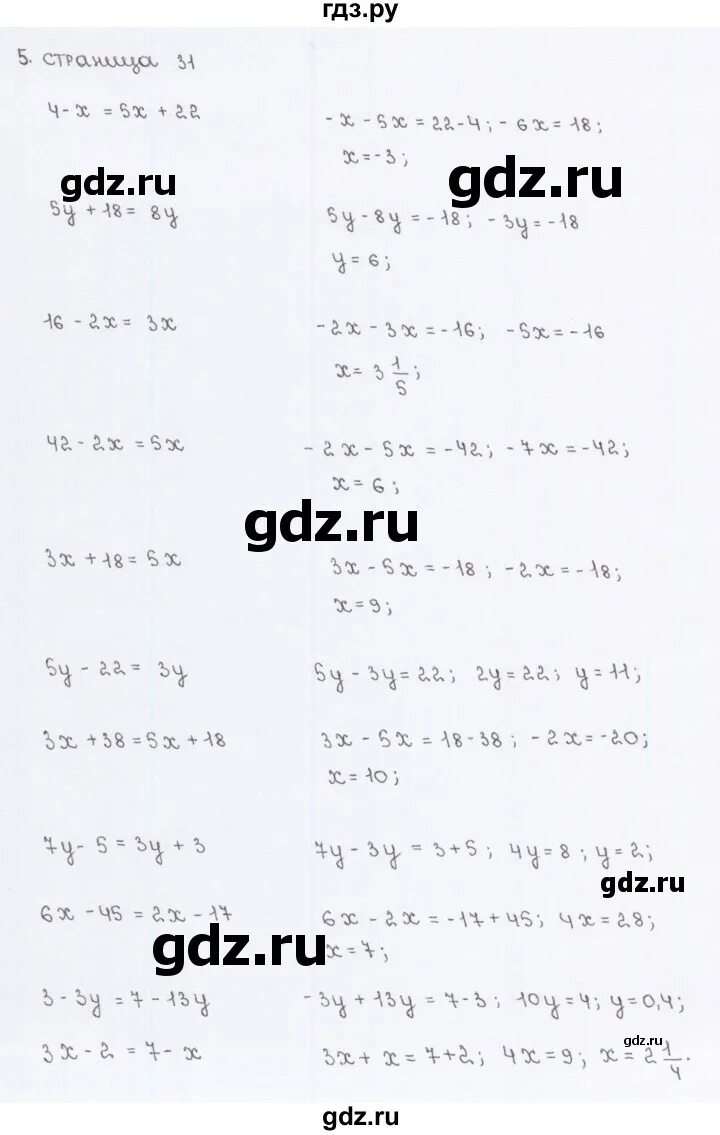 гдз.ру
5. страница 31
4 - x = 5x + 22
- x - 5x = 22 - 4; - 6x = 18;
x = -3;
gdz.ru
gdz.ru
5y + 18 = 8y
5y - 8y = -18; - 3y = -18
y = 6;
16 - 2x = 3x
- 2x - 3x = -16; -5x = -16
x = 3 1/5;
42 - 2x = 5x
- 2x - 5x = -42; - 7x = -42;
x = 6;
gdz.ru
3x + 18 = 5x
3x - 5x = -18; -2x = -18;
x = 9;
5y - 22 = 3y
5y - 3y = 22; 2y = 22; y = 11;
3x + 38 = 5x + 18
3x - 5x = 18 - 38; -2x = -20;
x = 10;
7y - 5 = 3y + 3
7y - 3y = 3 + 5; 4y = 8; y = 2;
gdz.ru
6x - 45 = 2x - 17
6x - 2x = -17 + 45; 4x = 28;
gdz.ru
x = 7;
3 - 3y = 7 - 13y
-3y + 13y = 7 - 3; 10y = 4; y = 0,4;
gdz.ru
3x - 2 = 7 - x
3x + x = 7 + 2; 4x = 9; x = 2 1/4.
gdz.ru